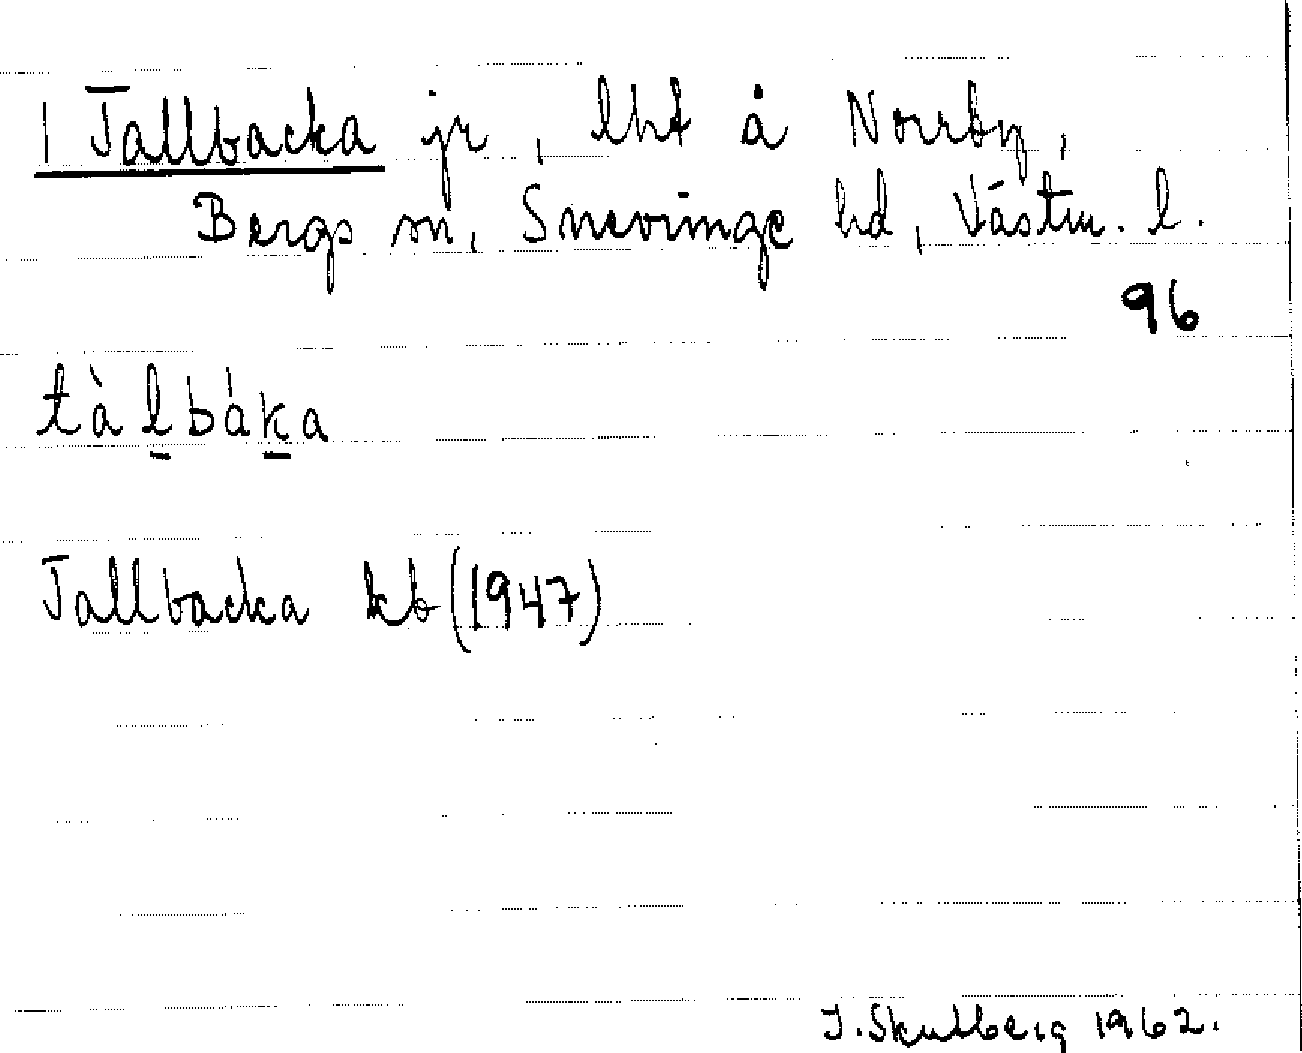 1 Tallbacka jr, lht å Norrby,
Bergs sn, Snevringe hd, Västm. l.
96
tàlbáka
Tallbacka kb (1947)
1962.